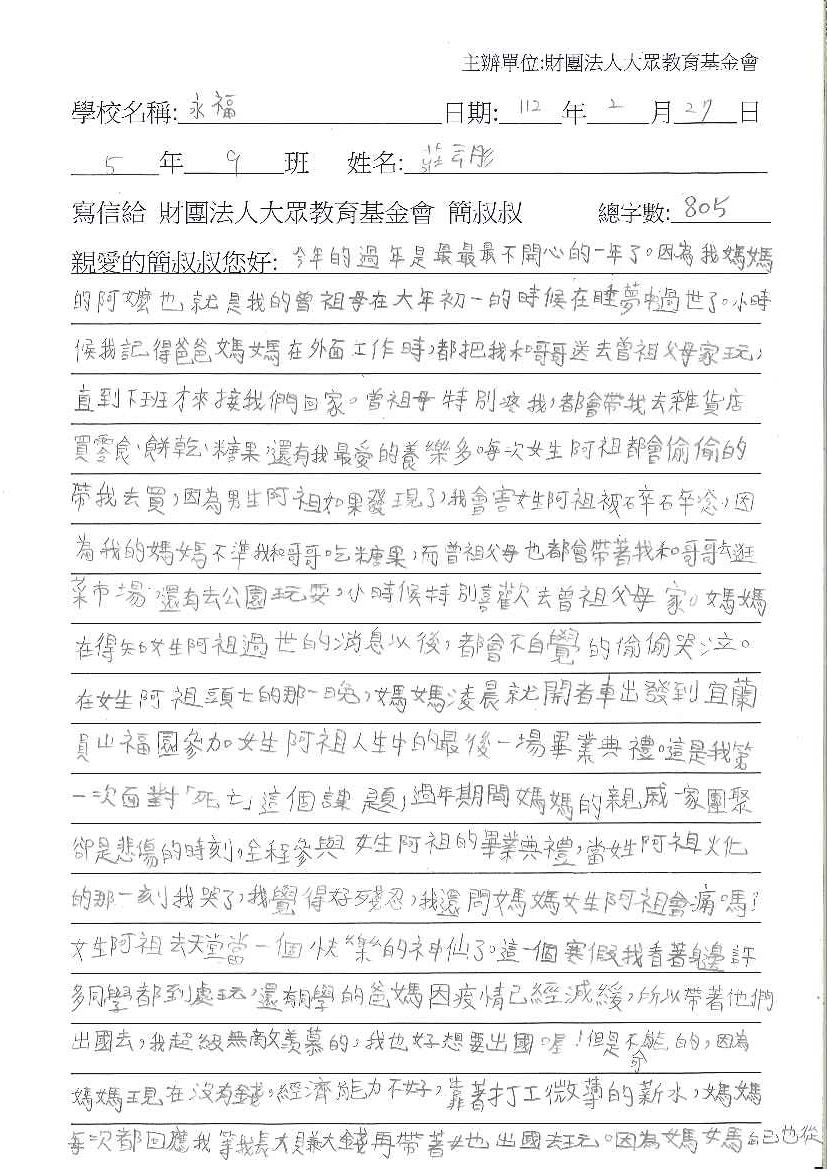 主辦單位:財團法人大眾教育基金會
學校名稱: 永福 日期: 112 年 2 月 27 日
5 年 9 班 姓名: 莊云彤
寫信給 財團法人大眾教育基金會 簡叔叔 總字數: 805
親愛的簡叔叔您好: 今年的過年是最最最不開心的一年了。因為我媽媽
的阿嬤也就是我的曾祖母在大年初一的時候在睡夢中過世了。小時
候我記得爸爸媽媽在外面工作時,都把我和哥哥送去曾祖父母家玩,
直到下班才來接我們回家。曾祖母特別疼我,都會帶我去雜貨店
買零食、餅乾、糖果還有我最愛的養樂多。每次女生阿祖都會偷偷的
帶我去買,因為男生阿祖如果發現了,我會害女生阿祖被碎碎唸,因
為我的媽媽不準我和哥哥吃糖果,而曾祖父母也都會帶著我和哥哥去逛
菜市場、還有去公園玩耍,小時候特別喜歡去曾祖父母家。媽媽
在得知女生阿祖過世的消息以後,都會不自覺的偷偷哭泣。
在女生阿祖頭七的那一晚,媽媽凌晨就開著車出發到宜蘭
員山福園參加女生阿祖人生中的最後一場畢業典禮。這是我第
一次面對「死亡」這個課題,過年期間媽媽的親戚一家團聚
卻是悲傷的時刻,全程參與女生阿祖的畢業典禮,當女生阿祖火化
的那一刻我哭了,我覺得好殘忍,我還問媽媽女生阿祖會痛嗎?
女生阿祖去天堂當一個快樂的神仙了。這一個寒假我看著身邊許
多同學都到處玩,還有同學的爸媽因疫情已經減緩,所以帶著他們
出國去,我超級無敵羨慕的,我也好想要出國喔!但是不可能的,因為
媽媽現在沒有錢,經濟能力不好,靠著打工微薄的薪水,媽媽
每次都回應我等我長大賺大錢再帶著她出國去玩。因為媽媽自己也從